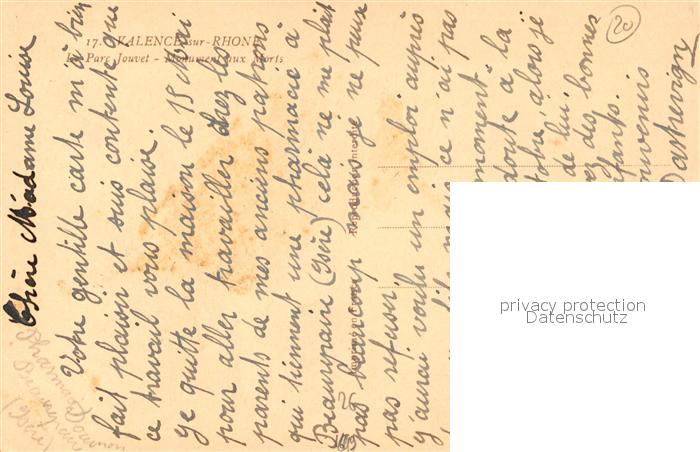 17. VALENCE-sur-RHONE
Le Parc Jouvet - Monument aux Morts
20
Chère Madame Louise
Votre gentille carte m'a bien
fait plaisir et suis contente que
ce travail vous plaise.
Je quitte la maison le 15 Mai
pour aller travailler chez les
parents de mes anciens patrons
qui tiennent une pharmacie à
Beaurepaire (Isère) cela ne me plait
pas beaucoup mais je ne peux
pas refuser.
J'aurai voulu un emploi auprès
mais ce n'ai pas
moment.
doute à la
alors je
de lui
des bonnes
Pharmacie
Beaurepaire
(Isère)
26
privacy protection
Datenschutz